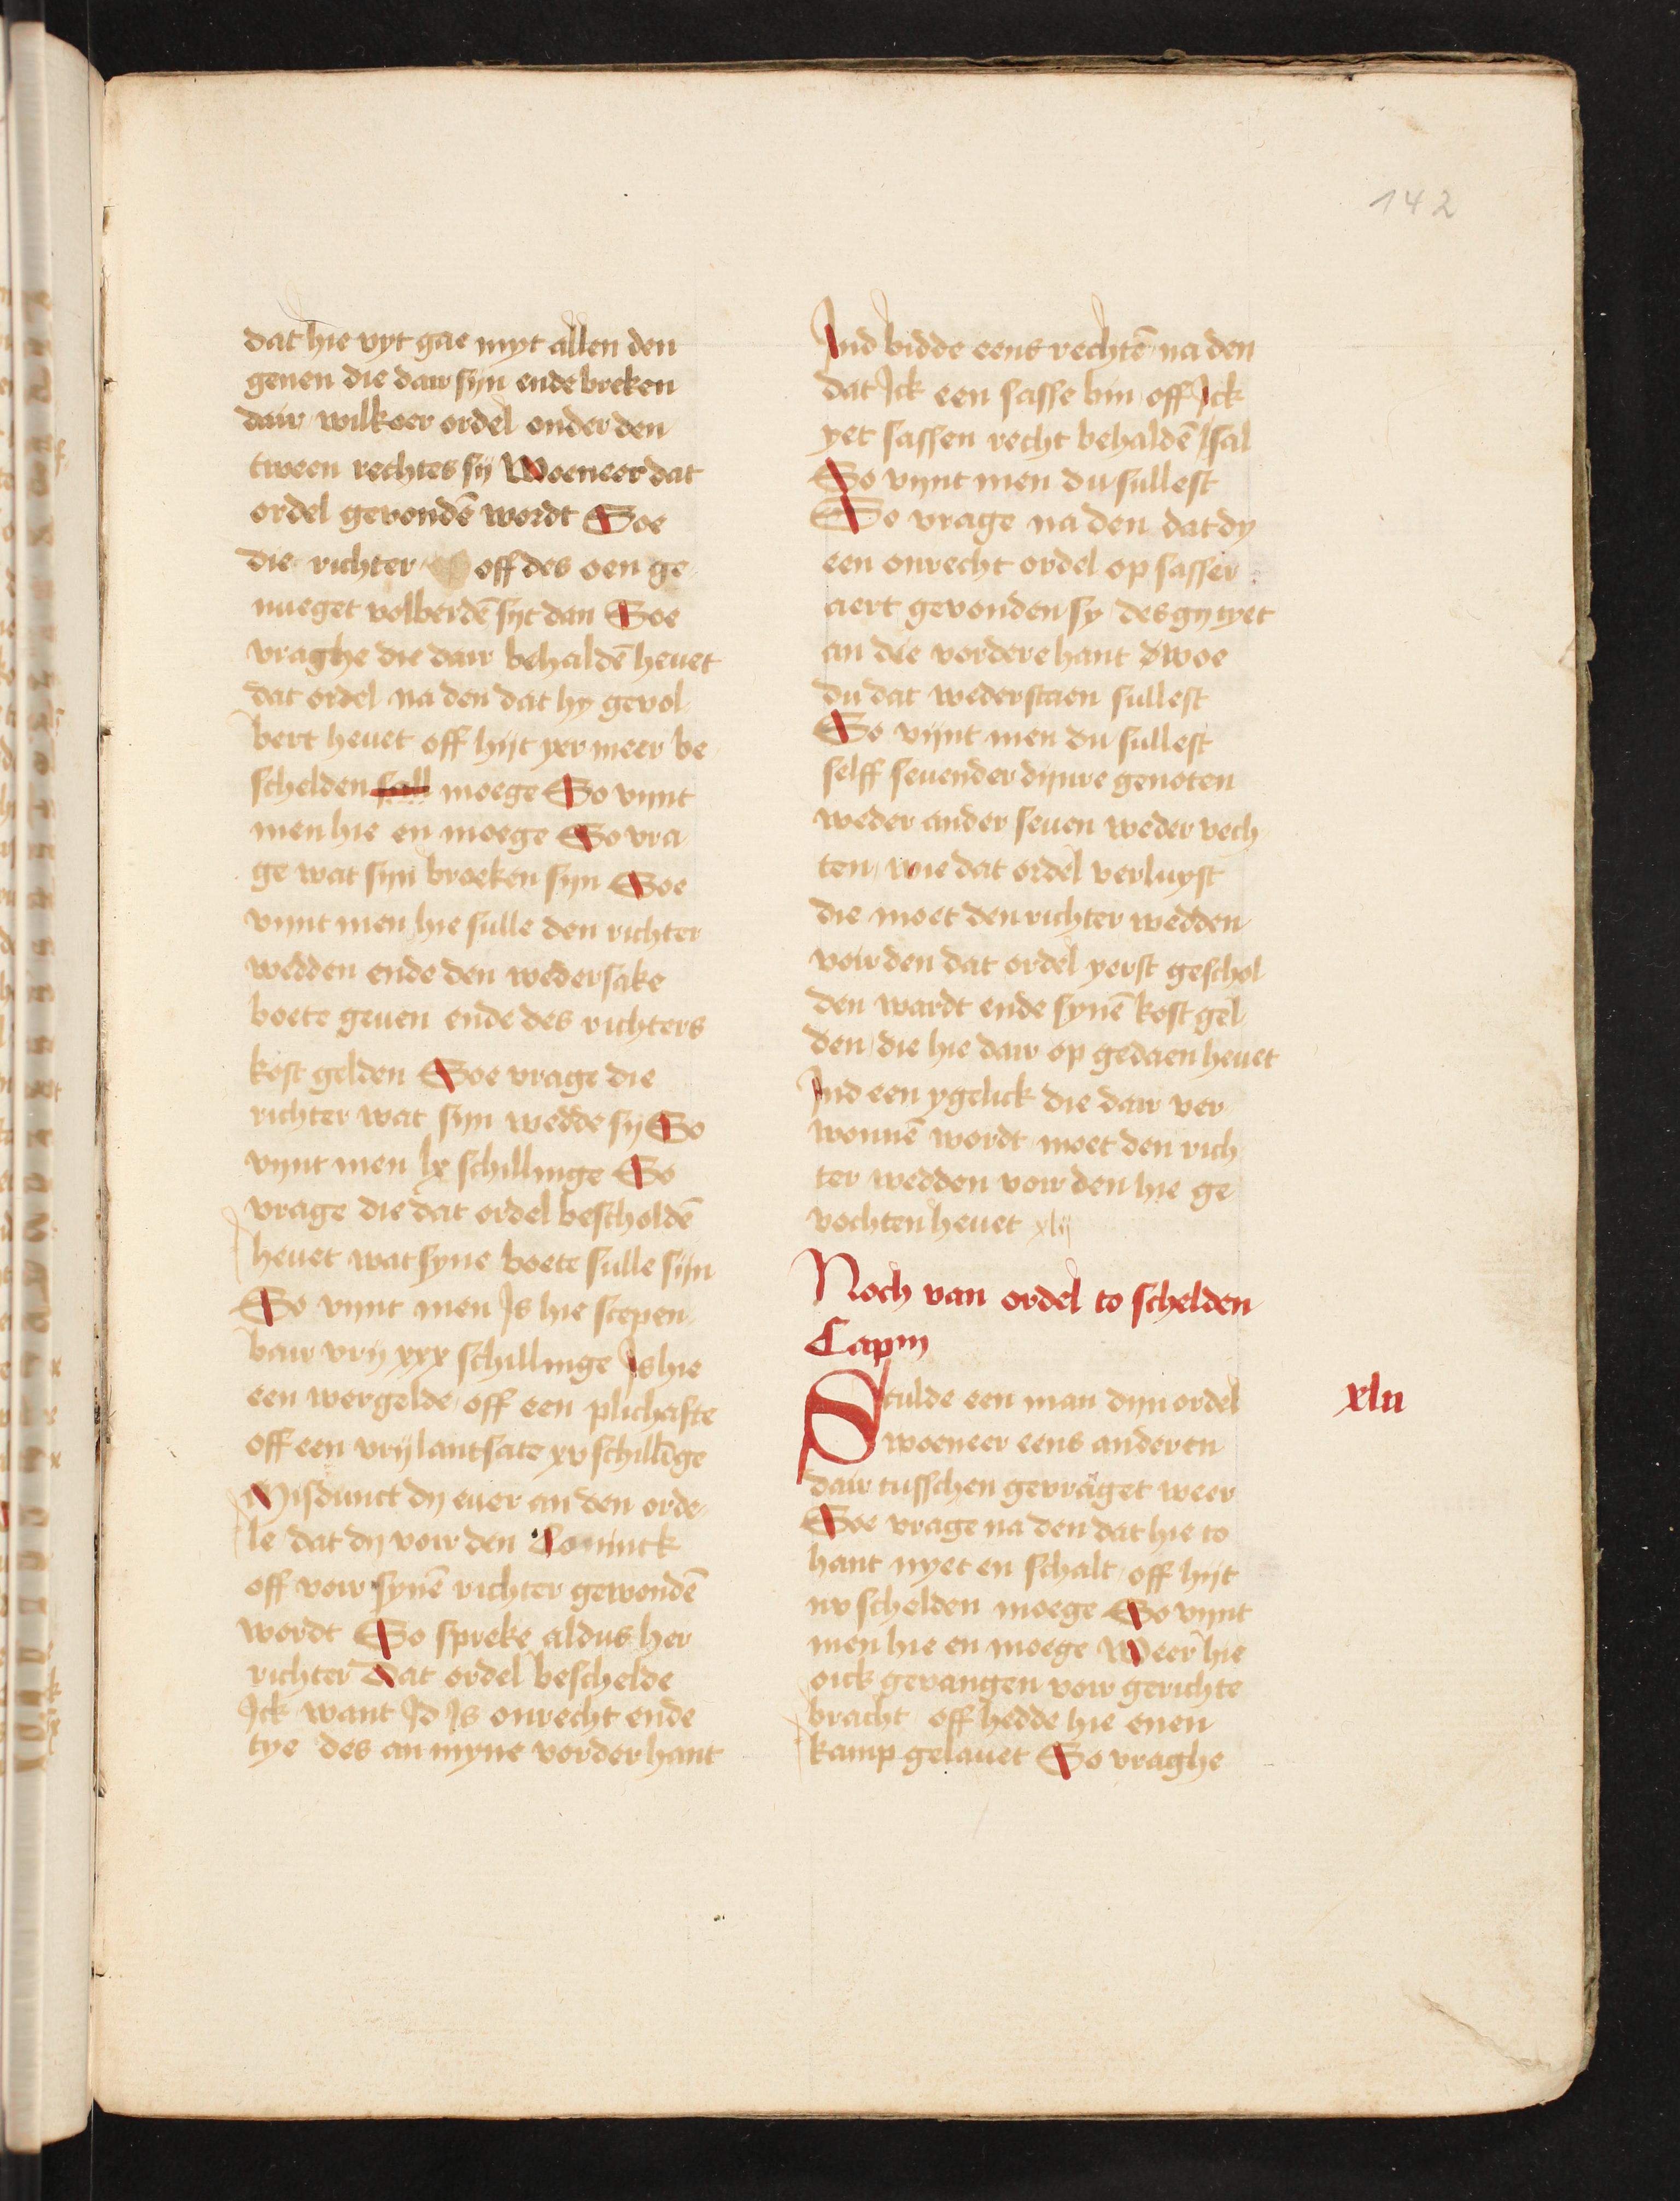 142
dat hie vyt gae myt allen den
genen die dair sijn ende breken
dair wilkoer ordel onder den
tween rechtes sij Woeneer dat
ordel gevondē wordt Soe
die richter off des oen ge
nueget volberdē sijt dan Soe
vraghe die dair behaldē heuet
dat ordel na den dat hy gevol
bert heuet off hijt yer meer be
schelden sall moege So vijnt
men hie en moege So vra
ge wat sijn broeken sijn Soe
vijnt men hie sulle den richter
wedden ende den wedersake
boete geuen ende des richters
kost gelden Soe vrage die
richter wat sijn wedde sij So
vijnt men lx schillinge So
vrage die dat ordel bescholdē
heuet wat syne boete sulle sijn
So vijnt men Js hie scepen
bair vrij xxx schillinge Js hie
een wergelde off een plichafte
off een vrij lantsate xv schillīge
Misdunct dy euer an den orde
le dat dy voir den Coninck
off voir synē richter gewondē
wordt So spreke aldus her
richter Dat ordel beschelde
Jck want Jd Js onrecht ende
tye des an myne vorder hant
Jnd bidde eens rechtē na den
dat Jck een sasse bin off Jck
yet sassen recht behaldē sal
So vijnt men du sullest
So vrage na den dat dy
een onrecht ordel op sasser
aert gevonden sy des gy tyet
an die vordere hant woe
du dat wederstaen sullest
So vijnt men du sullest
selff seuender dijnre genoten
weder ander seuen weder vech
ten wie dat ordel verluyst
die moet den richter wedden
voir den dat ordel yerst geschol
den wardt ende synē kost gel
den die hie dair op gedaen heuet
Jnd een ygelick die dair ver
wonnē wordt moet den rich
ter wedden voir den hie ge
vochten heuet xlij
Noch van ordel to schelden
Capm
Stulde een man dijn ordel
woeneer eens anderen
dair tusschen gevraget weer
Soe vrage na den dat hie to
hant nyet en schalt off hijt
nv schelden moege So vijnt
men hie en moege Weer hie
oick gevangen voir gerichte
bracht off hedde hie enen
kamp gelauet So vraghe
xlii